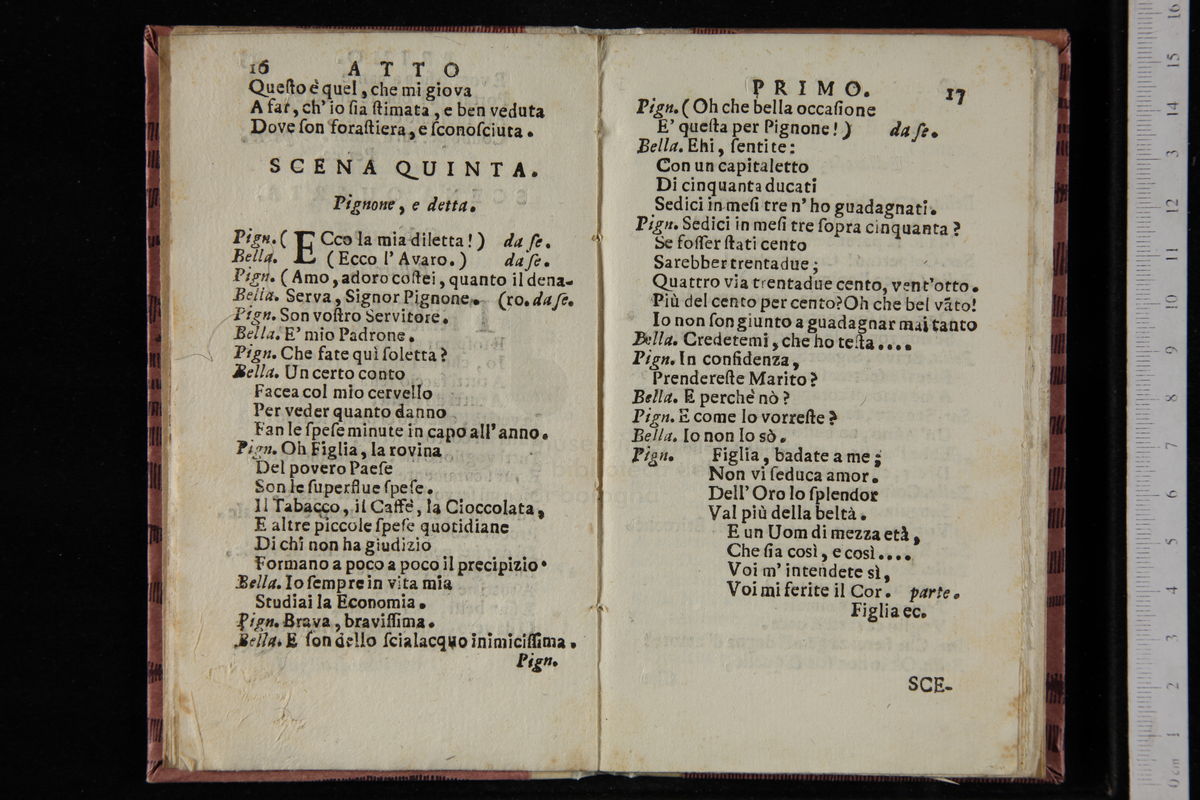 16 ATTO
Queſto è quel, che mi giova
A far, ch' io ſia ſtimata, e ben veduta
Dove ſon foraſtiera, e ſconoſciuta.
SCENA QUINTA.
Pignone, e detta.
Pign. (ECco la mia diletta!) da ſe.
Bella. (Ecco l' Avaro.) da ſe.
Pign. (Amo, adoro coſtei, quanto il dena-
Bella. Serva, Signor Pignone. (ro. da ſe.
Pign. Son voſtro Servitore.
Bella. E' mio Padrone.
Pign. Che fate quì ſoletta?
Bella. Un certo conto
Facea col mio cervello
Per veder quanto danno
Fan le ſpeſe minute in capo all' anno.
Pign. Oh Figlia, la rovina
Del povero Paeſe
Son le ſuperflue ſpeſe.
Il Tabacco, il Caffè, la Cioccolata,
E altre piccole ſpeſe quotidiane
Di chi non ha giudizio
Formano a poco a poco il precipizio.
Bella. Io ſempre in vita mia
Studiai la Economia.
Pign. Brava, braviſſima.
Bella. E ſon dello ſcialacquo inimiciſſima.
Pign.
PRIMO. 17
Pign. (Oh che bella occaſione
E' queſta per Pignone!) da ſe.
Bella. Ehi, ſentite:
Con un capitaletto
Di cinquanta ducati
Sedici in meſi tre n' ho guadagnati.
Pign. Sedici in meſi tre ſopra cinquanta?
Se foſſer ſtati cento
Sarebber trentadue;
Quattro via trentadue cento, vent'otto.
Più del cento per cento? Oh che bel vãto!
Io non ſon giunto a guadagnar mai tanto
Bella. Credetemi, che ho teſta....
Pign. In confidenza,
Prendereſte Marito?
Bella. E perchè nò?
Pign. E come lo vorreſte?
Bella. Io non lo sò.
Pign. Figlia, badate a me;
Non vi ſeduca amor.
Dell' Oro lo ſplendor
Val più della beltà.
E un Uom di mezza età,
Che ſia così, e così....
Voi m' intendete sì,
Voi mi ferite il Cor. parte.
Figlia ec.
SCE-